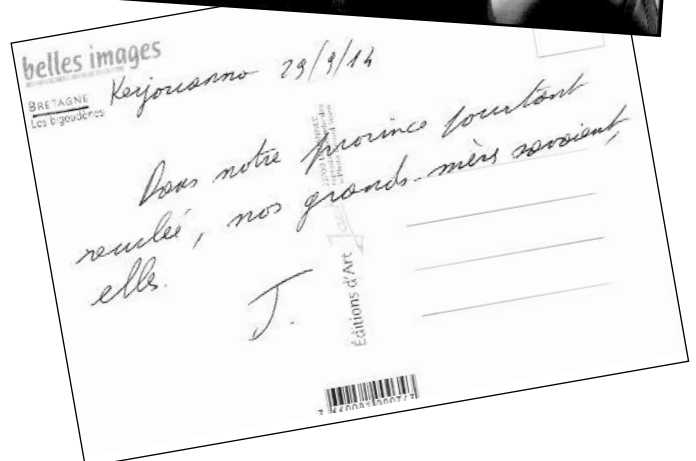 belles images
BRETAGNE
Les bigoudènes
Kerjouanno 29/9/14
Dans notre province pourtant
reculée, nos grands-mères savaient,
elles.
J.
Éditions d'Art